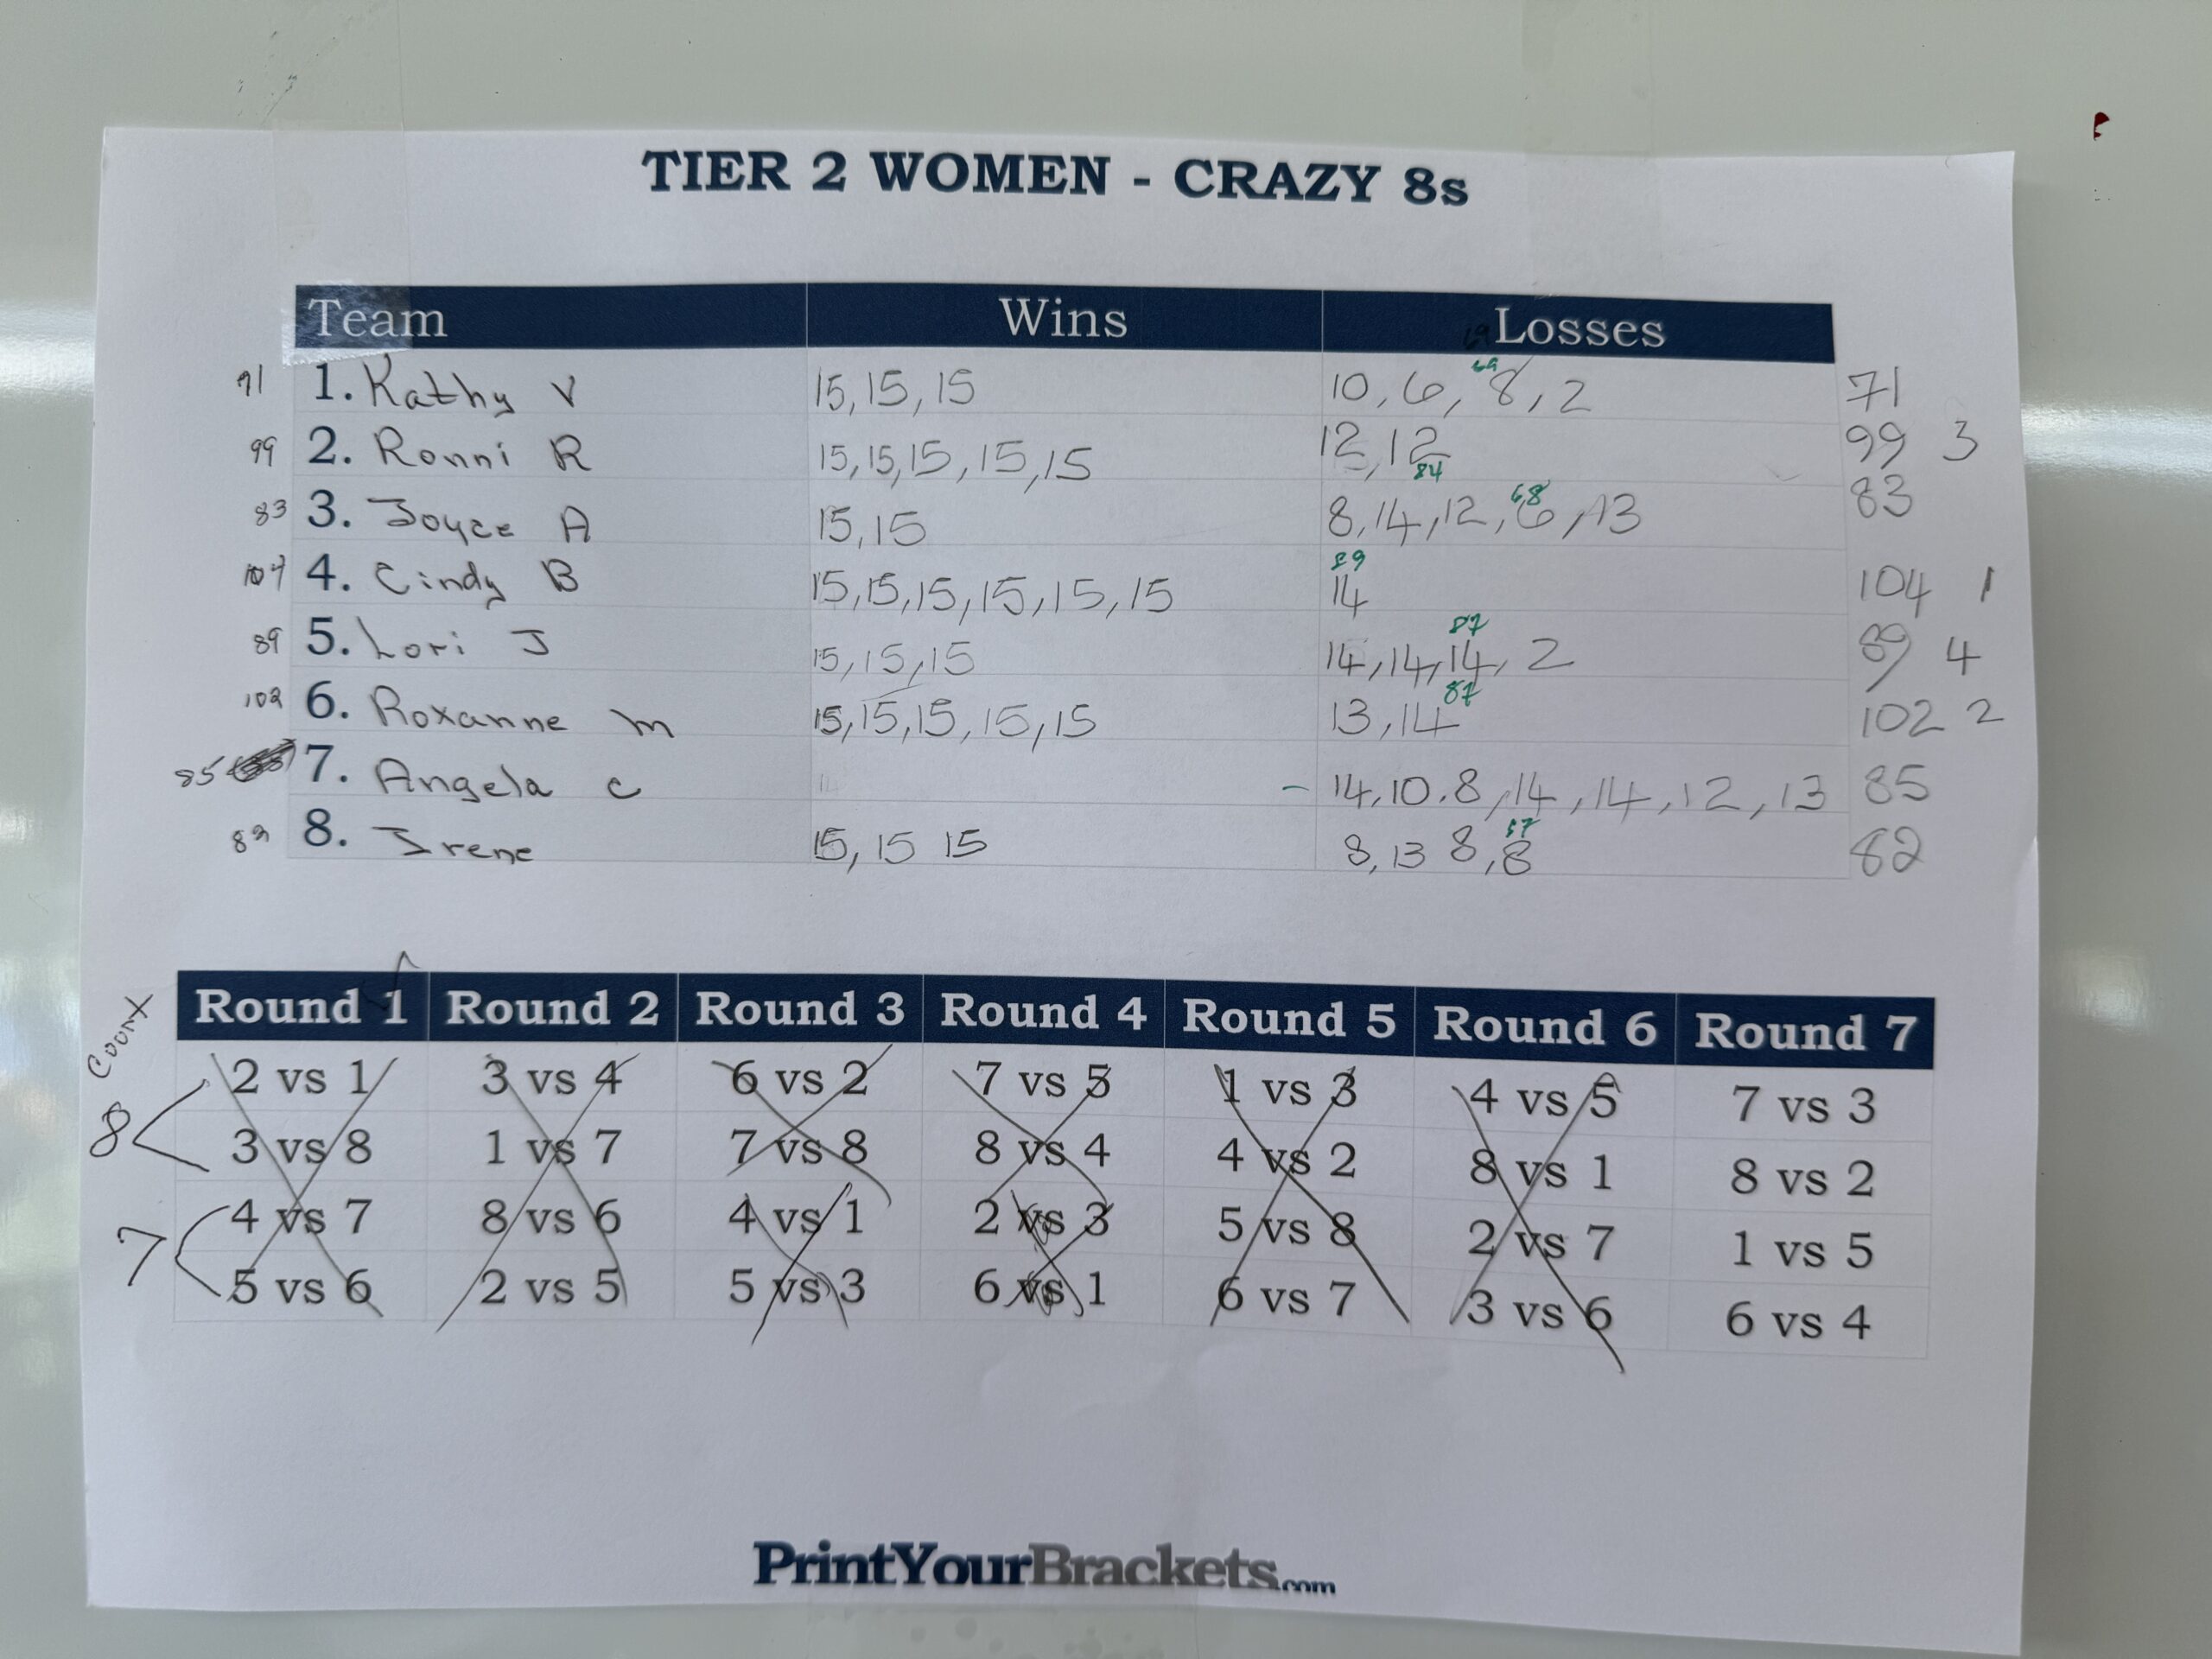 TIER 2 WOMEN - CRAZY 8s
Team Wins Losses
69
71 1. Kathy V 15, 15, 15 10, 6, 8, 2 71
99 2. Ronni R 15, 15, 15, 15, 15 12, 12 99 3
84
68
83 3. Joyce A 15, 15 8, 14, 12, 6, 13 83
89
104 4. Cindy B 15, 15, 15, 15, 15, 15 14 104 1
87
89 5. Lori J 15, 15, 15 14, 14, 14, 2 89 4
87
102 6. Roxanne m 15, 15, 15, 15, 15 13, 14 102 2
85 7. Angela C - 14, 10, 8, 14, 14, 12, 13 85
67
82 8. Irene 15, 15 15 8, 13 8, 8 82
Court
Round 1 Round 2 Round 3 Round 4 Round 5 Round 6 Round 7
2 vs 1 3 vs 4 6 vs 2 7 vs 5 1 vs 3 4 vs 5 7 vs 3
8
3 vs 8 1 vs 7 7 vs 8 8 vs 4 4 vs 2 8 vs 1 8 vs 2
4 vs 7 8 vs 6 4 vs 1 2 vs 3 5 vs 8 2 vs 7 1 vs 5
7
5 vs 6 2 vs 5 5 vs 3 6 vs 1 6 vs 7 3 vs 6 6 vs 4
PrintYourBrackets.com